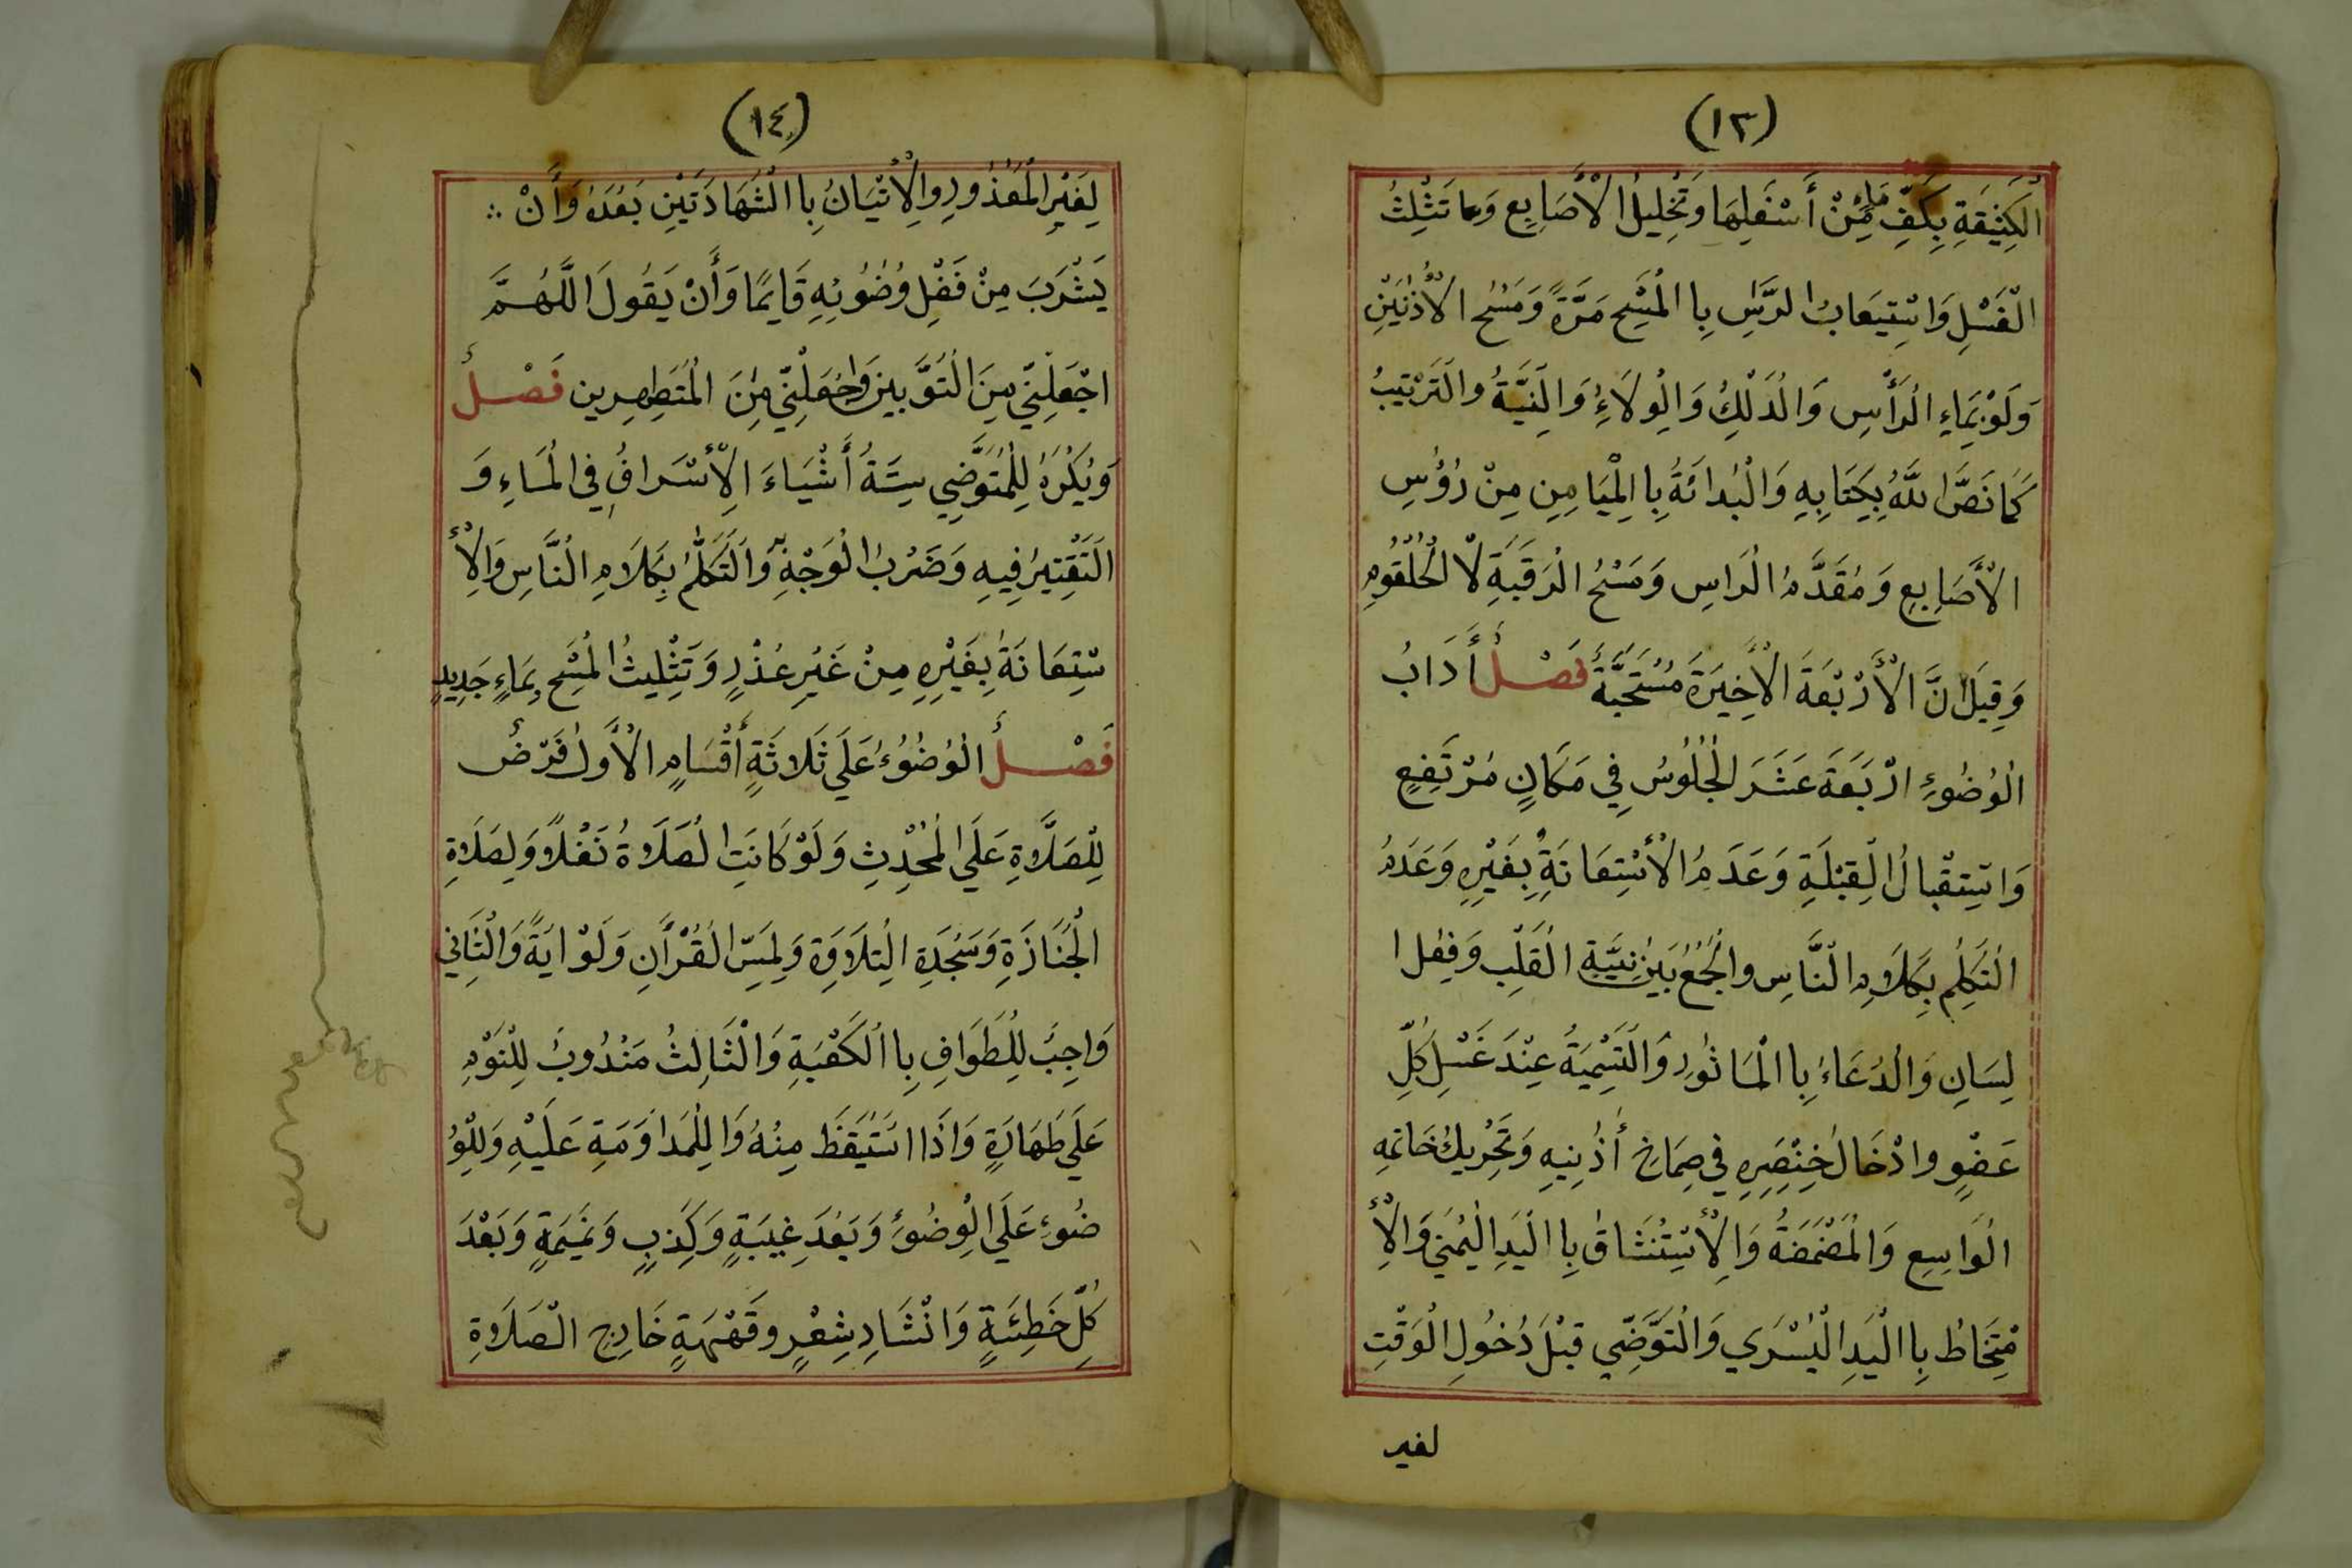 (١٣)
الْكَثِيفَةِ بِكَفِّ مَاءٍ مِنْ أَسْفَلِهَا وَتَخْلِيلُ الْأَصَابِعِ وَتَثْلِثُ
الْغَسْلِ وَاسْتِيعَابُ الرَّسِ بِاالْمَسْحِ مَرَّةً وَمَسْحُ الْأُذُنَيْنِ
وَلَوْ بِمَاءِ الرَّأْسِ وَالْدَلْكُ وَالْوِلَاءُ وَالنِيَّةُ والتَرْتِيبُ
كَمَا نَصَّ اللَّهُ بِكِتَابِهِ وَالْبُدَائَةُ بِاالْمِيَامِنِ مِنْ رُؤُسِ
الْأَصَابِعِ وَمُقَدَّمُ الْرَاسِ وَمَسْحُ الْرَقَبَةِ لَا الْحُلْقُومِ
وَقِيلَ انَّ الْأَرْبَعَةَ الْأَخِيرَةَ مُسْتَحَبَّةٌ فَصْلٌ أَدَابُ
الْوُضُوءِ ارْبَعَةَ عَشَرَ الْجُلُوسُ فِي مَكَانٍ مُرْتَفِعٍ
وَاسْتِقْبَالُ الْقِبْلَةِ وَعَدَمُ الْأسْتِعَانَةِ بِغَيْرِهِ وَعَدَمُ
الْتَكَلُّمِ بِكَلَامِ الْنَّاسِ والْجُمْعُ بَيْنَ نِيَّةِ الْقَلْبِ وَفِعْلِ ا
لِسَانِ وَالْدُعَاءُ بِاالْمَاثُورِ وَالْتَسْمِيَةُ عِنْدَ غَسْلِ كُلِّ
عَضْوٍ وادْخَالُ خِنْصِرِهِ فِي صِمَاخِ أُذُنِيهِ وَتَحْرِيكُ خَاتَمِهِ
الْوَاسِعِ وَالْمَضْمَضَةُ وَالْأِسْتِنْشَاقُ بِاالْيَدِ الْيُمْنَي وَالْأِ
مْتِخَاطُ بِاالْيَدِ الْيُسْرَي وَالْتَوَضِّي قَبْلَ دُخُولِ الْوَقْتِ
لغير
(١٤)
لِغَيْرِ الْمَعْذُورِ وَالْأِتْيَانُ بِاالْشَهَادَتَيْنِ بَعْدَهُ وَأَنْ ∴
يَشْرَبَ مِنْ فَضْلِ وُضُوئِهِ قَايِمًا وَأَنْ يَقُولَ الَّلهُمَّ
اجْعَلْنِي مِنَ الْتَوَّبِينَ وَاجْعَلْنِي مِنَ الْمُتَطِهِرِين فَصْلٌ
وَيُكْرَهُ لِلْمُتَوَضِّي سِتَّةُ أَشْيَاءَ الْأِسْرَافُ فِي الْمَاءِ وَ
الْتَقْتِيرُ فِيهِ وَضَرْبُ الْوَجْهِ وَالْتَكَلُّمُ بِكَلَامِ الْنَّاسِ وَالْأِ
سْتِعَانَةُ بِغَيْرِهِ مِنْ غَيْرِ عُذْرٍ وَتَثْلِيثُ الْمَسْحِ بِمَاءٍ جَدِيدٍ
فَصْلٌ الْوُضُوءُ عَلَي ثَلَاثَةِ أَقْسَامٍ الْأَوَّلُ فَرْضٌ
لِلْصَلَّاةِ عَلَي الْمُحْدِثِ وَلَوْ كَانَتِ الْصَلَاةُ نَفْلاً وَلِصَلَاةِ
الْجَنَازَةِ وَسَجْدَةِ الْتِلَاوَةِ وَلِمَسِّ الْقُرْأَنِ وَلَوْ ايَةً وَالْثَانِي
وَاجِبٌ لِلْطَوَافِ بِاالْكَعْبَةِ وَالْثَالِثُ مَنْدُوبٌ لِلْنَوْمِ
عَلَي طَهَارَةٍ وَاذَا اسْتَيْقَظَ مِنْهُ وَالِلْمُدَاوَمَةِ عَلَيْهِ وَلِلْوُ
ضُوءِ عَلَي الْوِضُوءِ وَبَعْدَ غِيبَةٍ وَكَذِبٍ وَنَمِيمَةٍ وَبَعْدَ
كُلِّ خَطِئَةٍ وَانْشَادِ شِعْرٍ وقَهْقَهَةٍ خَارِجِ الْصَلَاةِ